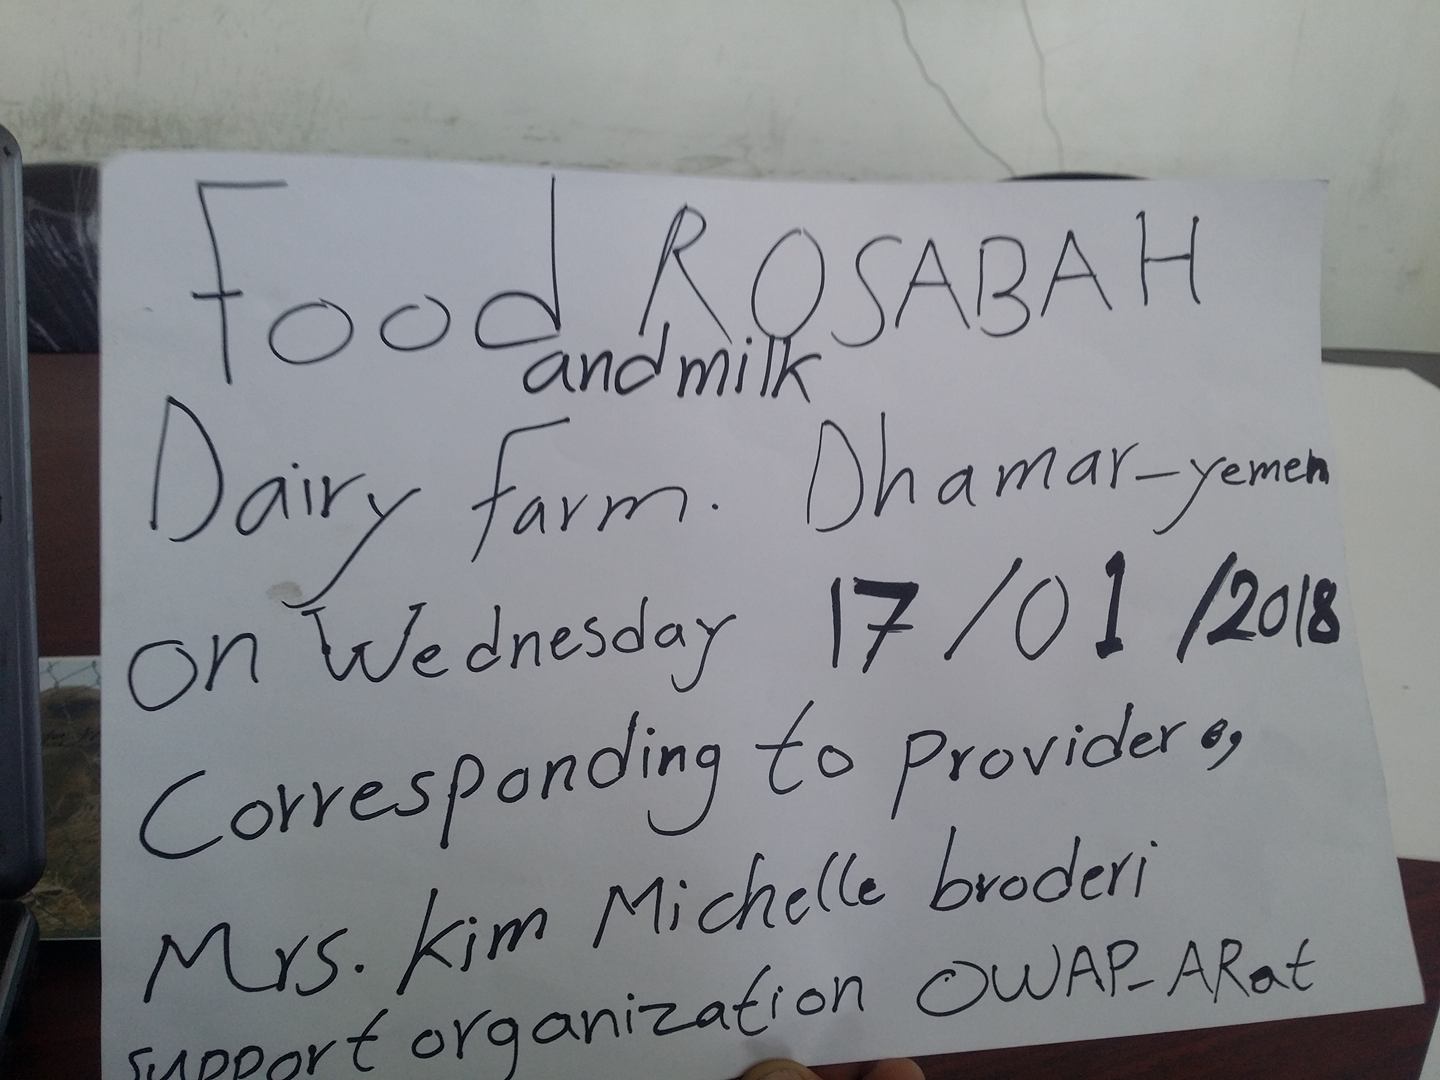 Food ROSABAH
and milk
Dairy farm. Dhamar-yemen
on Wednesday 17/01/2018
Corresponding to provider,
Mrs. kim Michelle broderi
support organization OWAP-ARat